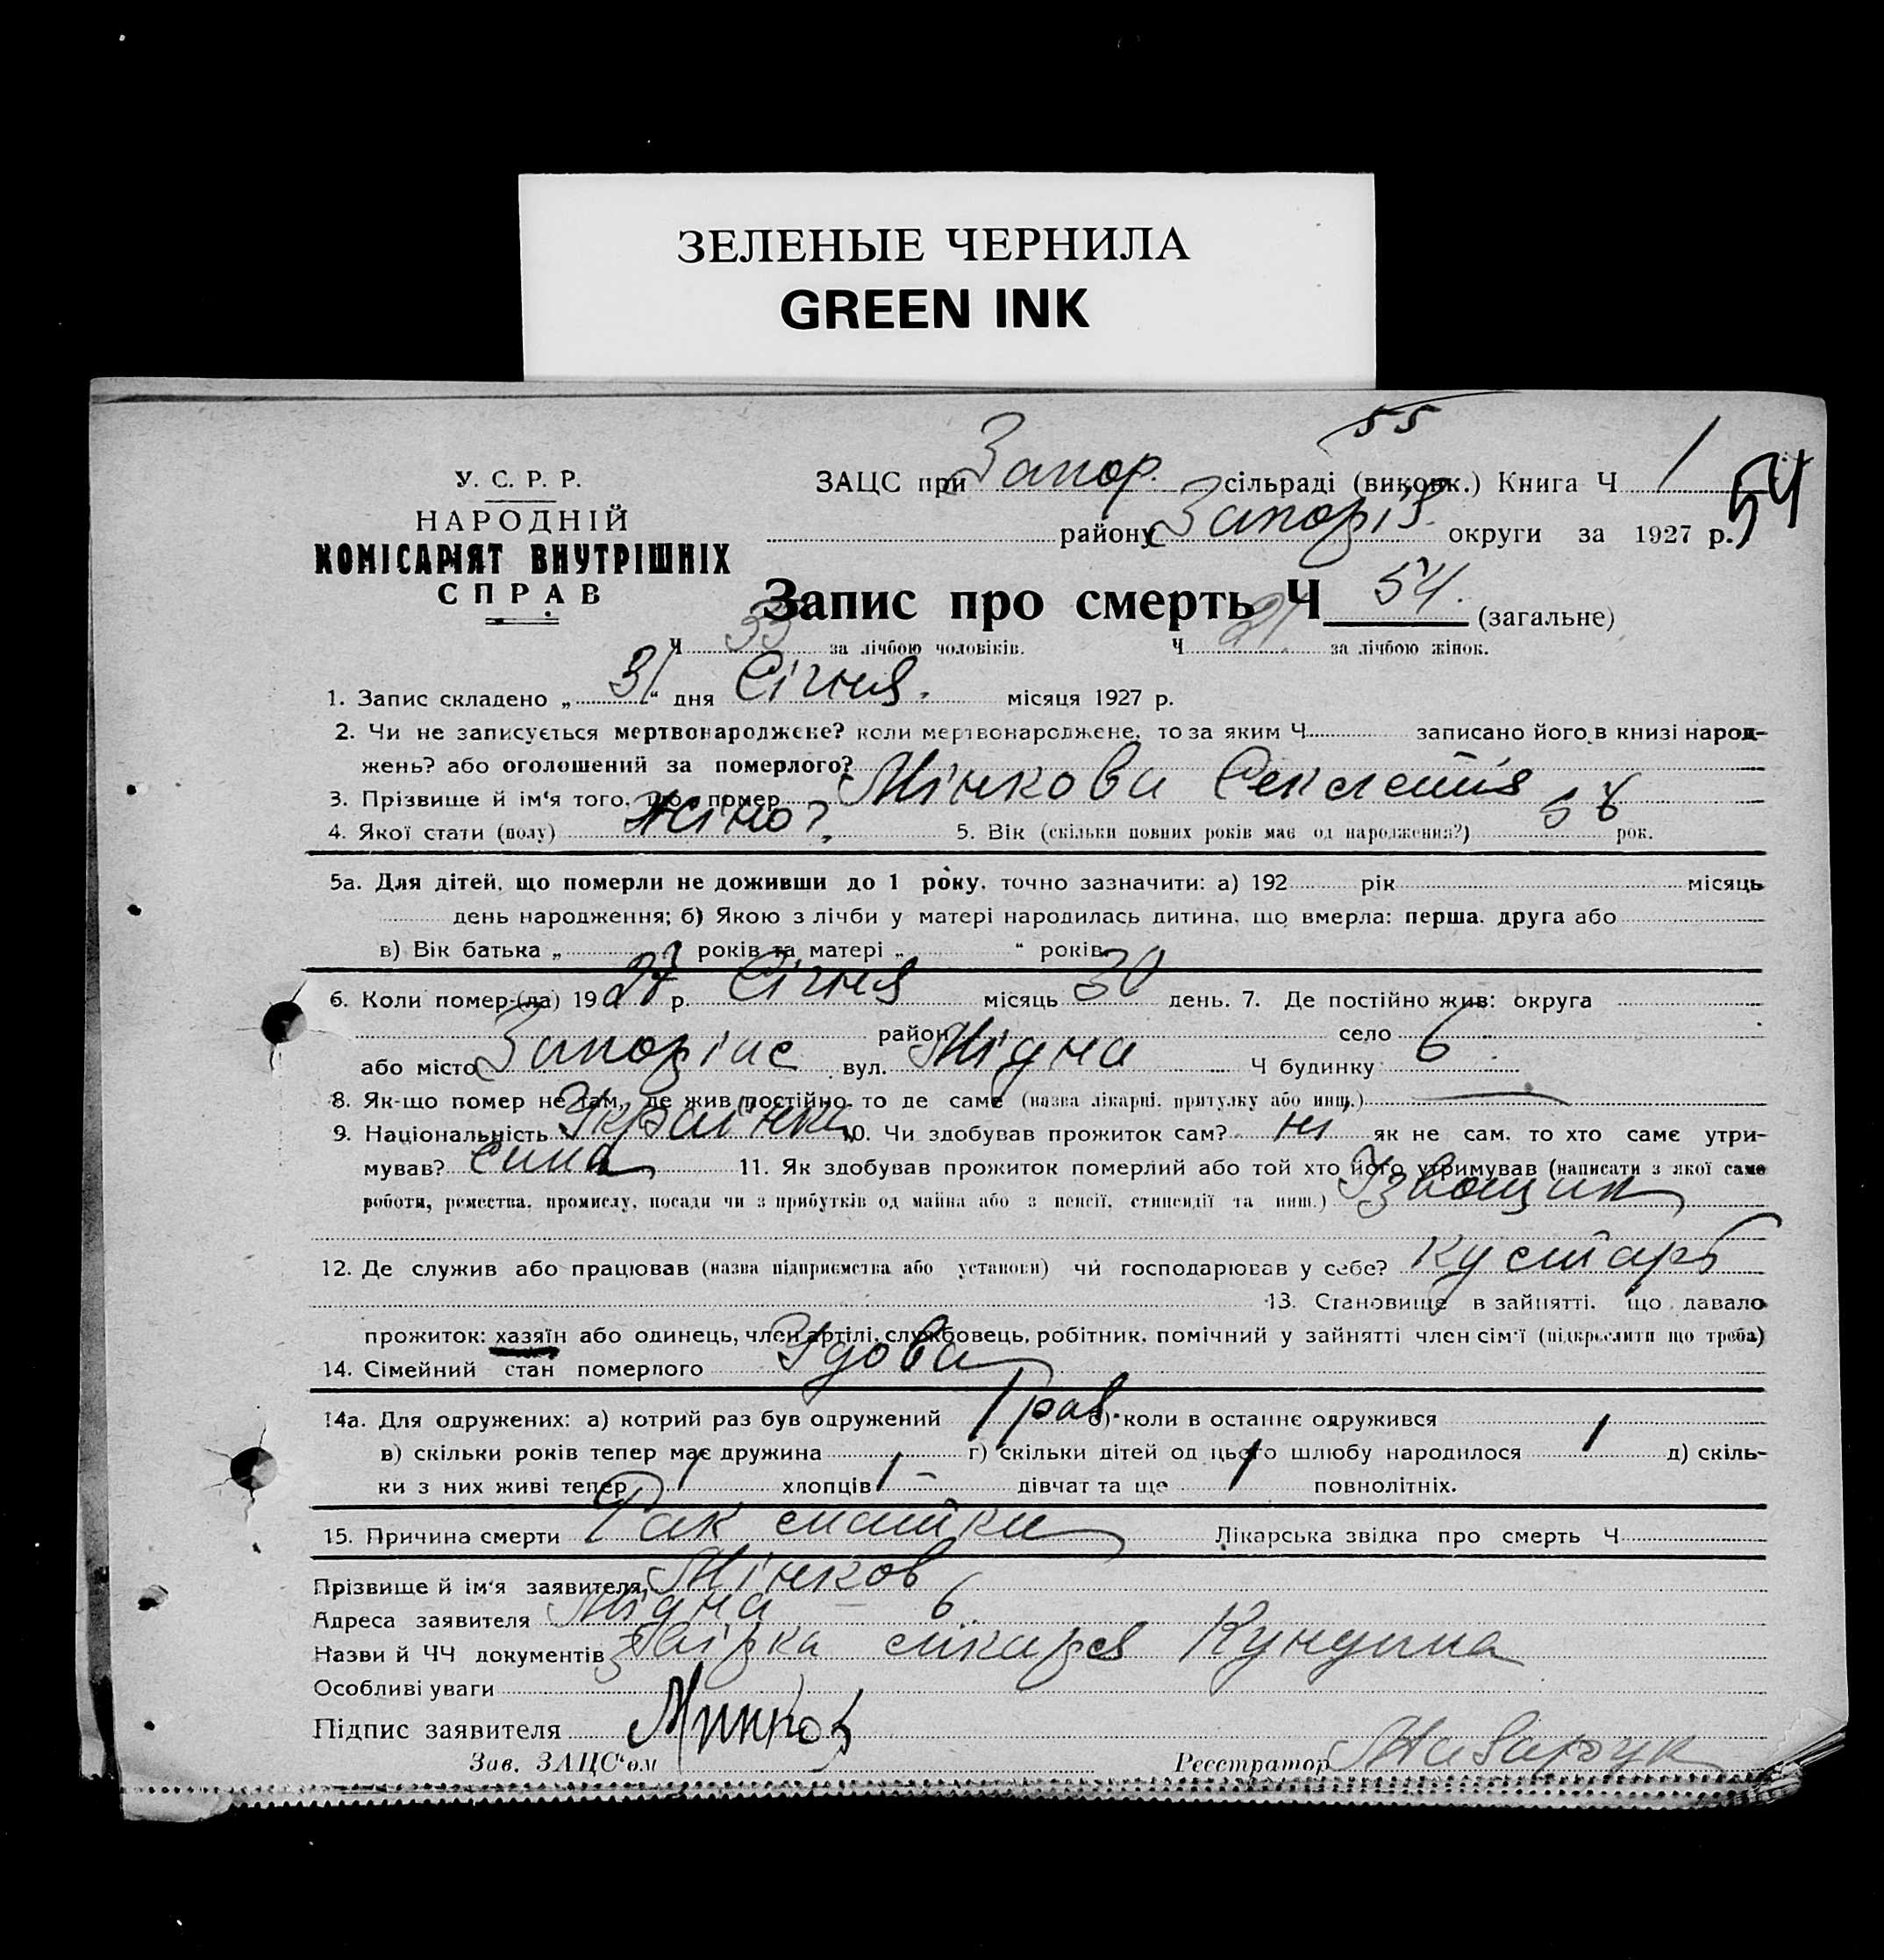 ЗЕЛЕНЫЕ ЧЕРНИЛА
GREEN INK
55
У. С. Р. Р.
НАРОДНІЙ
КОМІСАРІЯТ ВНУТРІШНІХ
СПРАВ
ЗАЦС при Запор. сільраді (виконк.) Книга Ч 1
54
району Запоріз. округи за 1927 р.
Запис про смерть Ч 54. (загальне)
Ч 33 за лічбою чоловіків. Ч 21. за лічбою жінок.
1. Запис складено „ 31 “ дня Січня. місяця 1927 р.
2. Чи не записується мертвонароджене? коли мертвонароджене, то за яким Ч записано його в книзі народ-
жень? або оголошений за померлого?
3. Прізвище й ім'я того, що помер Мінкова Секлетія
4. Якої стати (полу) Жіно?. 5. Вік (скільки повних років має од народження?) 58 рок.
5а. Для дітей, що померли не доживши до 1 року, точно зазначити: а) 192 рік місяць
день народження; б) Якою з лічби у матері народилась дитина, що вмерла: перша, друга або
в) Вік батька „ “ років та матері „ “ років.
6. Коли помер-(ла) 1927 р. Січня місяць 30 день. 7. Де постійно жив: округа
район село
або місто Запоріжє вул. Мідна Ч будинку 6
8. Як-що помер не там, де жив постійно, то де саме (назва лікарні, притулку або инш.) —
9. Національність Українка 10. Чи здобував прожиток сам? ні як не сам, то хто саме утри-
мував? сина 11. Як здобував прожиток померлий або той хто його утримував (написати з якої саме
роботи, ремества, промислу, посади чи з прибутків од майна або з пенсії, стипендії та инш.) Ізвощик
12. Де служив або працював (назва підприємства або установи) чи господарював у себе? Кустарь
13. Становище в зайнятті, що давало
прожиток: хазяїн або одинець, член артілі, службовець, робітник, помічний у зайнятті член сім'ї (підкреслити що треба)
14. Сімейний стан померлого Удова
14а. Для одружених: а) котрий раз був одружений 1 раз. б) коли в останнє одружився
в) скільки років тепер має дружина г) скільки дітей од цього шлюбу народилося 1 д) скіль-
ки з них живі тепер 1 хлопців 1 – дівчат та ще 1 повнолітніх.
15. Причина смерти Рак матки Лікарська звідка про смерть Ч
Прізвище й ім'я заявителя Мінков
Адреса заявителя Мідна 6.
Назви й ЧЧ документів лікаря Кундіна
Особливі уваги
Підпис заявителя Минков
Зав. ЗАЦС'ом Реєстратор Назарчук